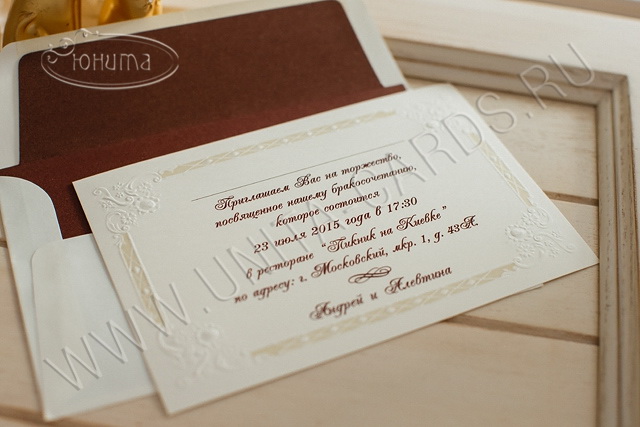 Юнита
Приглашаем Вас на торжество,
посвященное нашему бракосочетанию,
которое состоится
23 июля 2015 года в 17:30
в ресторане "Пикник на Киевке"
по адресу: г. Московский, мкр. 1, д. 43А
Андрей и Алевтина
WWW.UNITA-CARDS.RU